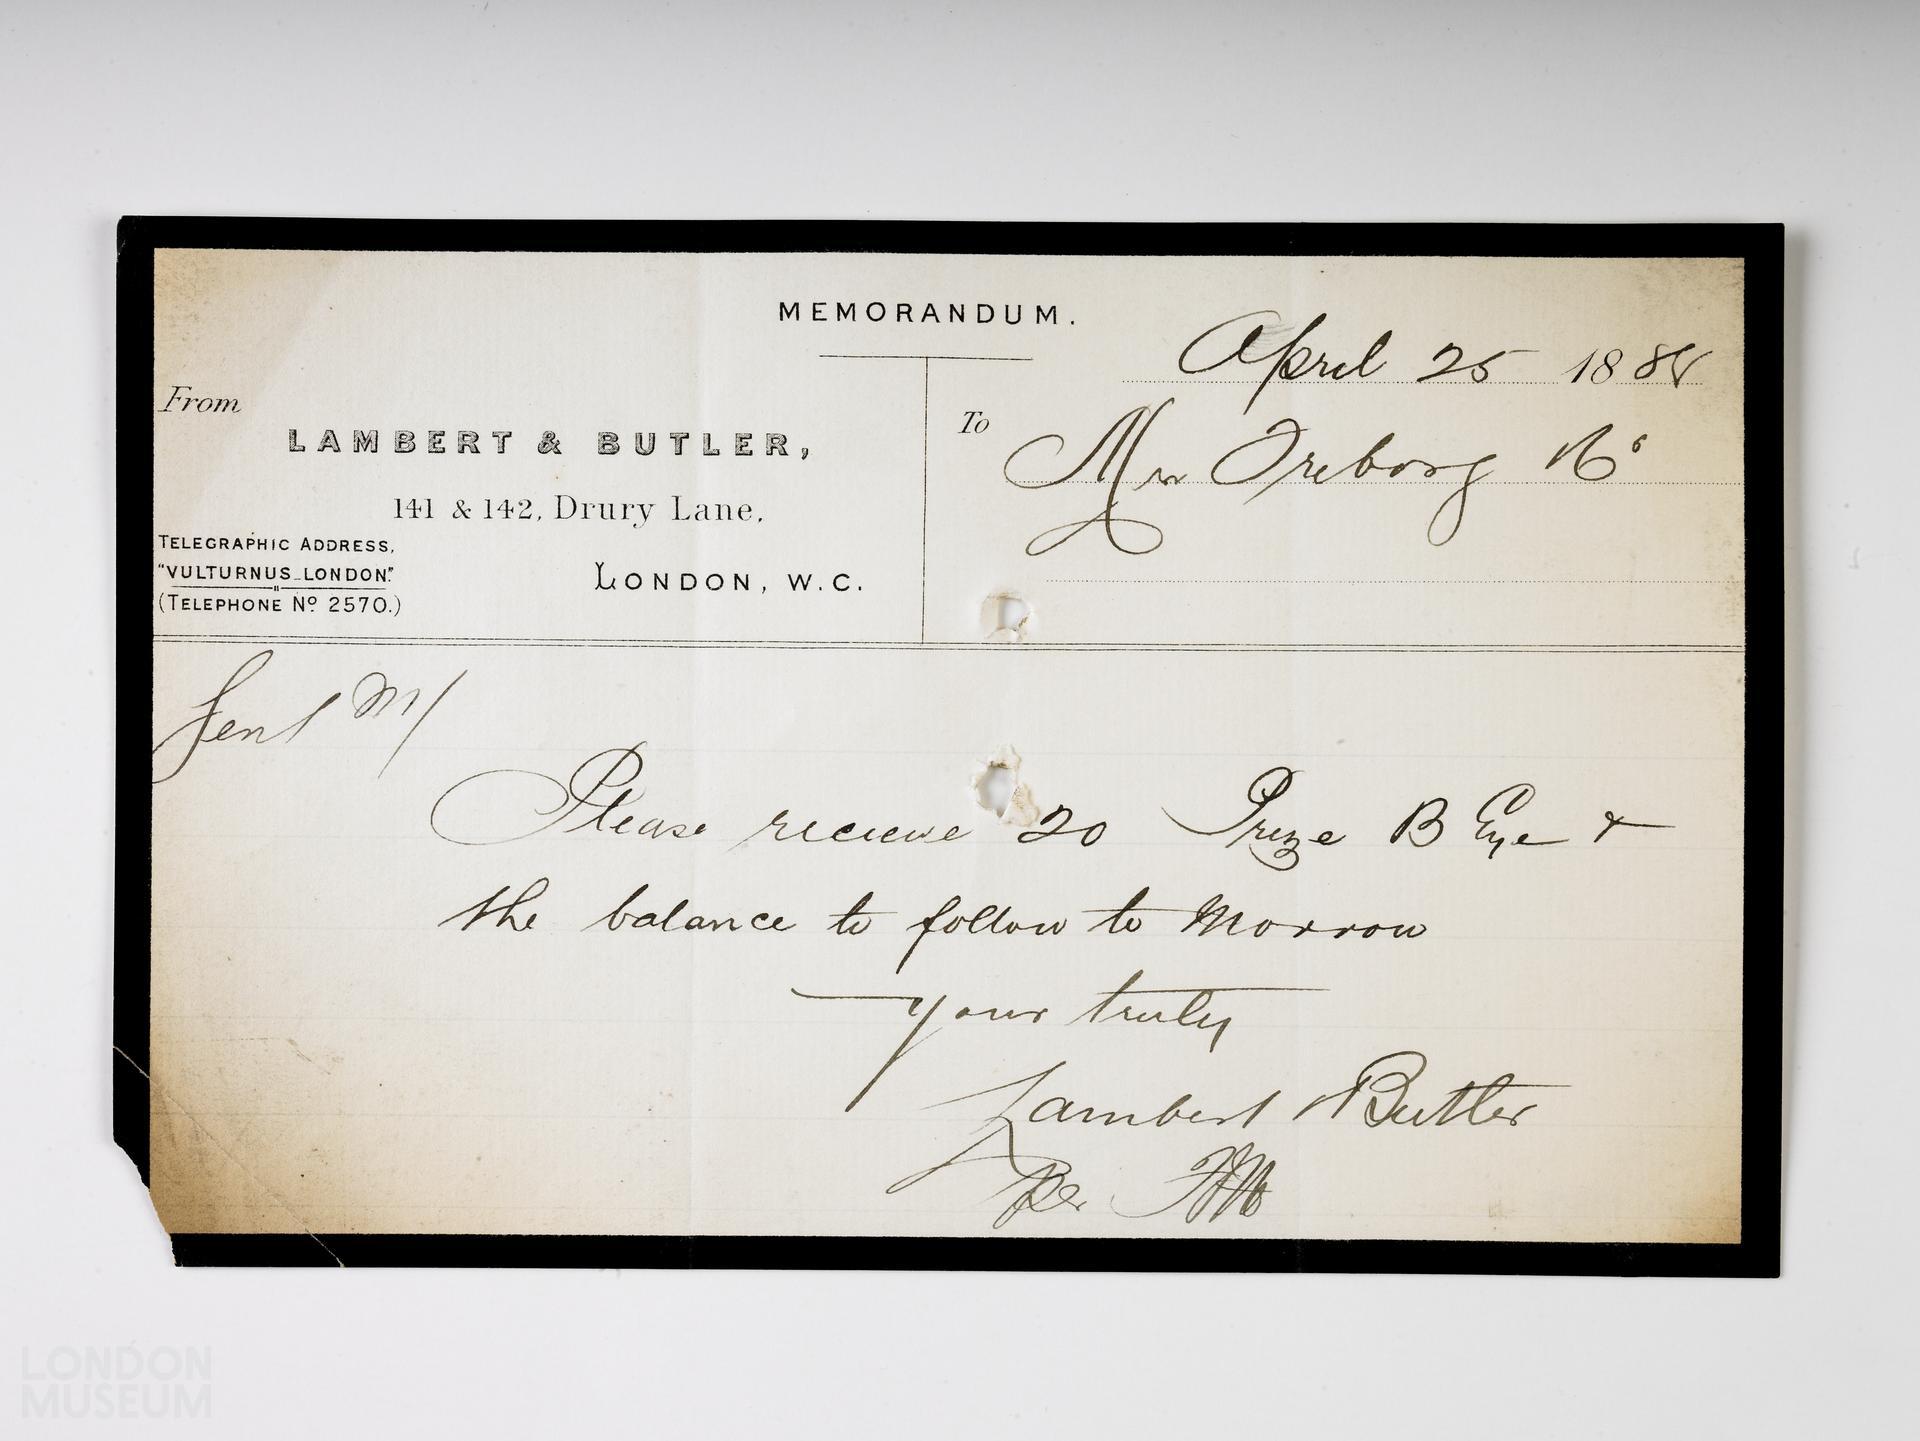 MEMORANDUM.
April 25 1888
From
LAMBERT & BUTLER,
141 & 142, Drury Lane,
TELEGRAPHIC ADDRESS,
"VULTURNUS_LONDON."
LONDON, W.C.
(TELEPHONE No 2570.)
To
Please recieve 20 Prize B Eye &
the balance to follow to Morrow
Your truly
Lambert Butler
Per
LONDON
MUSEUM